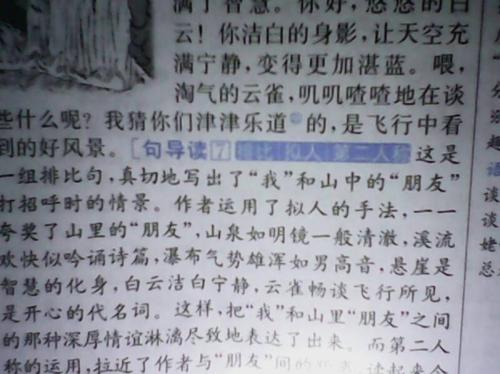 满了智慧。你好，悠悠的白
云！你洁白的身影，让天空充
满宁静，变得更加湛蓝。喂，
淘气的云雀，叽叽喳喳地在谈
些什么呢？我猜你们津津乐道 的，是飞行中看
到的好风景。[句导读7 排比 拟人 第二人称 这是
一组排比句，真切地写出了“我”和山中的“朋友”
打招呼时的情景。作者运用了拟人的手法，一一
夸奖了山里的“朋友”，山泉如明镜一般清澈，溪流
欢快似吟诵诗篇，瀑布气势雄浑如男高音，悬崖是
智慧的化身，白云洁白宁静，云雀畅谈飞行所见，
是开心的代名词。这样，把“我”和山里“朋友”之间
的那种深厚情谊淋漓尽致地表达了出来。而第二人
称的运用，拉近了作者与“朋友”间的 读起来令
分
趣
语
谈
谈
姥
总